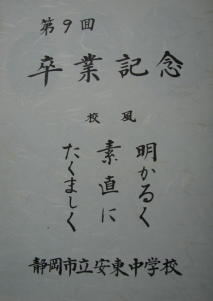 第9回
卒業記念
校風
明かるく
素直に
たくましく
静岡市立安東中学校